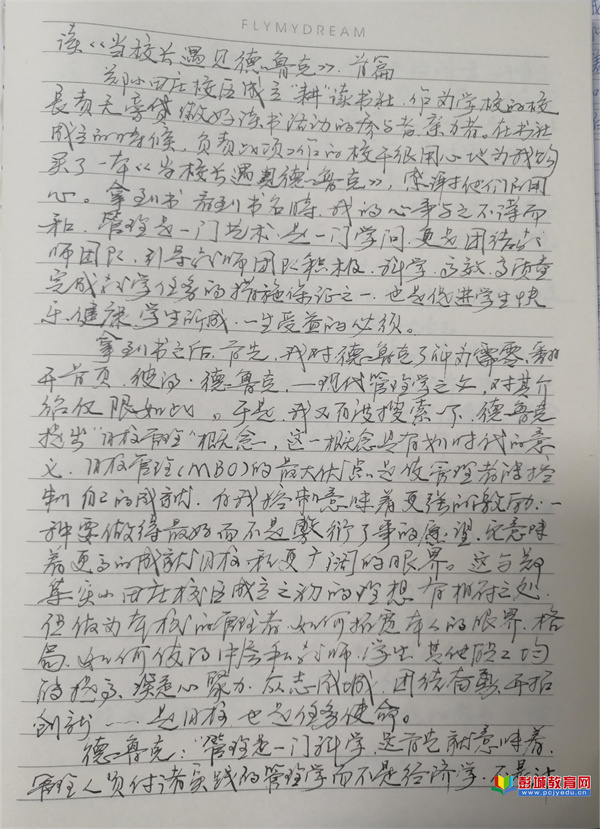 FLYMYDREAM
读《当校长遇见德鲁克》首篇
郑小田庄校区成立"耕"读书社,作为学校的校
长责无旁贷做好读书活动的参与者、亲历者。在书社
成立的时候,负责此项工作的校干很用心地为我购
买了一本《当校长遇见德鲁克》,感谢于他们的用
心。拿到书看到书名时,我的心事与之不谋而
和,管理是一门艺术,是一门学问,更是团结教
师团队,引导教师团队积极、科学、高效、高质量
完成教学任务的措施保证之一,也是促进学生快
乐、健康、学生所成,一生受益的必须。
拿到书之后,首先,我对德鲁克了解为零,翻
开首页,彼得·德鲁克,—现代管理学之父,对其介
绍仅限如此。于是,我又百度搜索一下,德鲁克
提出"目标管理"概念,这一概念是有划时代的意
义,目标管理(MBO)的最大优点是使管理者能控
制自己的成就,自我控制意味着更强的激励:一
种要做得最好而不是敷衍了事的愿望,它意味
着更高的成就目标和更广阔的眼界。这与郑
集实小田庄校区成立之初的理想有相符之处,
但做为本校的管理者,如何拓宽本人的眼界、格
局,如何使得中层和教师、学生、其他职工均
能提高,凝心聚力,众志成城,团结奋勇,开拓
创新……是目标也是任务使命。
德鲁克:"管理是一门科学,这首先就意味着,
管理人员付诸实践的管理学而不是经济学,不是计
彭城教育网
www.pcjyedu.cn